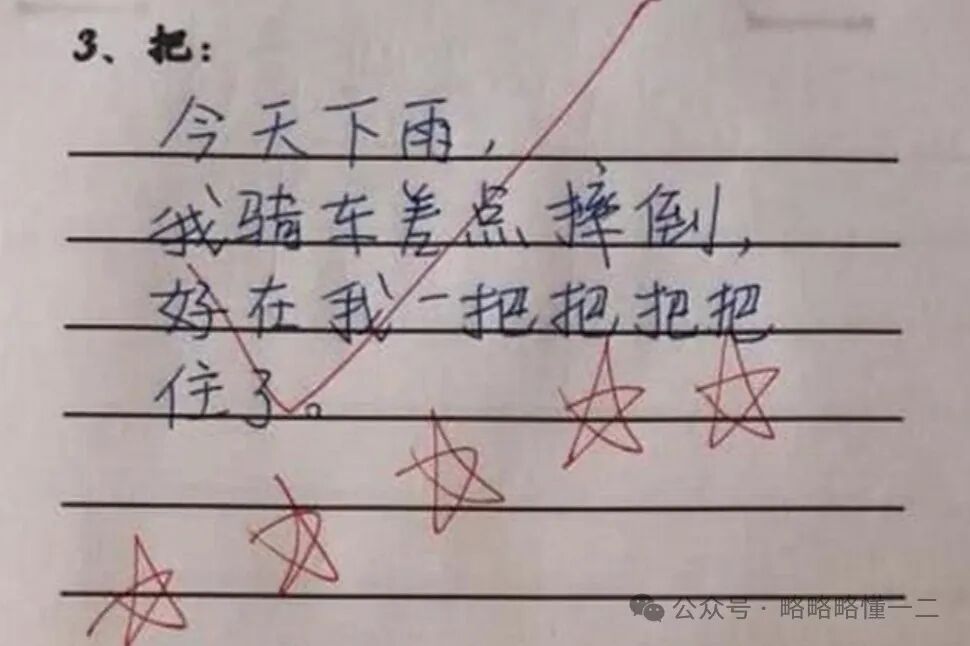 3、把：
今天下雨，
我骑车差点摔倒，
好在我一把把把把
住了。
公众号·略略略懂一二